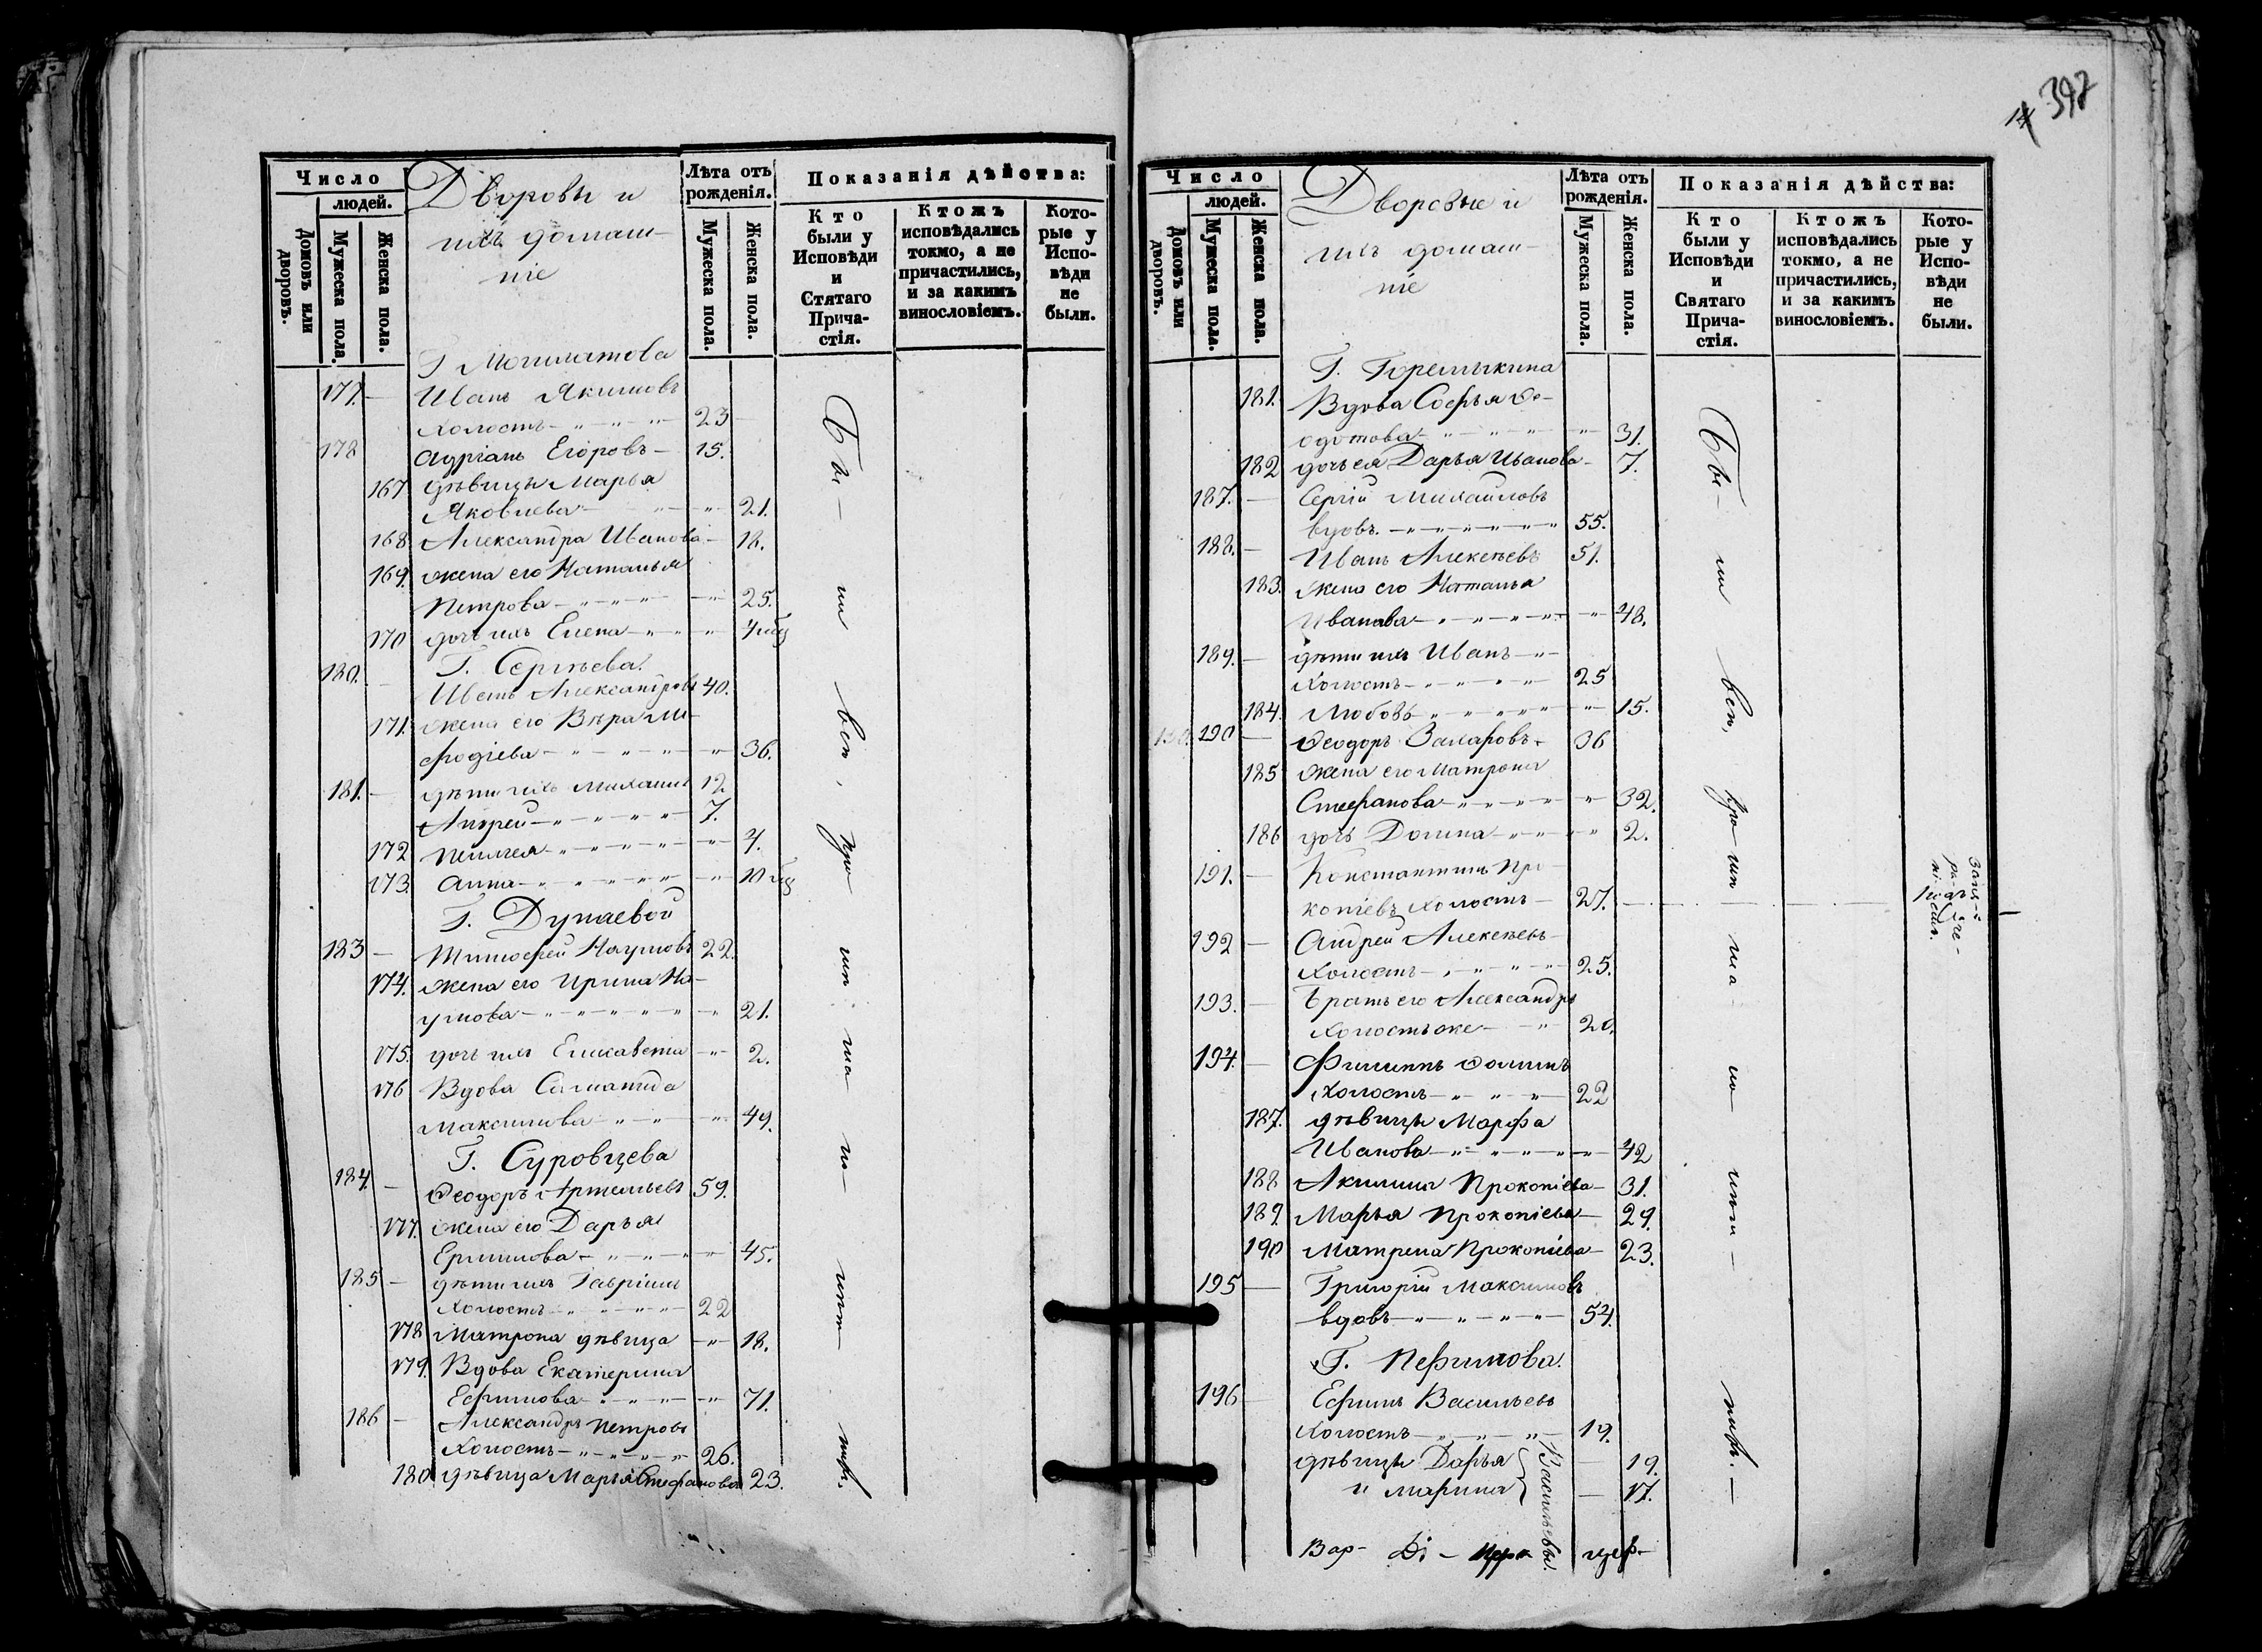 397
Число
людей.
Домовъ или дворовъ.
Мужеска пола.
Женска пола.
Дворовы и
ихъ домаш-
ніе
Лѣта отъ
рожденія.
Мужеска пола.
Женска пола.
Показанія дѣйства:
Кто
были у
Исповѣди
и
Стятаго
Прича-
стія.
Ктожъ
исповѣдались
токмо, а не
причастились,
и за какимъ
винословіемъ.
Кото-
рые у
Испо-
вѣди
не
были.
Г.
177. — Иванъ Якимовъ
холостъ 23
178 Адріанъ Егоровъ — 15.
167 дѣвицы Марья
Яковлева 21.
168 Александра Иванова — 18.
169. жена его Наталья
Петрова 25.
170 дочь ихъ Елена
Г. Сергѣева.
180. Иванъ Александровъ 40.
171. жена его Вѣра Ме-
фодіева 36.
181. — дѣти ихъ Михаилъ 12
Андрей 7.
172 4.
173. Анна 10
Г. Дунаевой
183 — Тимофей Наумовъ 22.
174. жена его Ирина На-
умова 21.
175. дочь ихъ Елисавета 2.
176 Вдова
Максимова 49.
Г. Суровцева
184. — Ѳеодоръ Артемьевъ 59.
177. жена его Дарья
Ермилова 45.
185 — дѣти ихъ Гавріилъ
холостъ 22
178 Матрона дѣвица 18.
179. Вдова Екатерина
Ефимова 71.
186 — Александръ Петровъ
холостъ 26.
180 дѣвица Марья Стефанова 23.
Бы-ли вси,
Число
людей.
Домовъ или дворовъ.
Мужеска пола.
Женска пола.
Дворовые и
ихъ домаш-
ніе
Лѣта отъ
рожденія.
Мужеска пола.
Женска пола.
Показанія дѣйства:
Кто
были у
Исповѣди
и
Святаго
Прича-
стія.
Ктожъ
исповѣдались
токмо, а не
причастились,
и за какимъ
винословіемъ.
Кото-
рые у
Испо-
вѣди
не
были.
Г. Горемыкина
181. Вдова Софья Ѳе-
одотова 31.
182 дочь ея Дарья Иванова — 7.
187. — Сергій Михаиловъ
вдовъ. 55.
188. — Иванъ Алексѣевъ 51.
183. жена его Наталья
Иванова 48.
189. — дѣти ихъ Иванъ
холостъ 25
184. Любовь 15.
190 — Ѳеодоръ Захаровъ 36
185 жена его Матрона
Стефанова 32.
186 дочь Домна 2.
191. — Константинъ Про-
копіевъ холостъ — 27.
192 — Андрей Алексѣевъ
холостъ 25.
193. — Братъ его Александръ
холостъ же 20.
194. — Филиппъ Ѳоминъ
холостъ 22
187. дѣвицы Марфа
Иванова 42
188 Акилина Прокопіева — 31.
189. Марья Прокопіева — 29.
190 Матрена Прокопіева — 23.
195 — Григорій Максимовъ
вдовъ 54.
Г.
196 Ефимъ Васильевъ
холостъ 19.
дѣвицы Дарья — 19.
и Марина — 17.
Васильевы.
Бы-ли вси,
Вар-